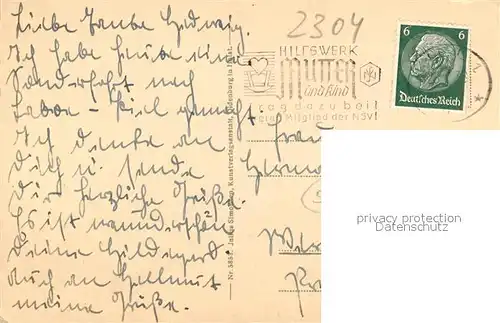 Liebe Tante Hedwig.
Ich habe heute eine
Sonderfahrt nach
Laboe - Kiel gemacht
Ich denke an
Dich u. sende
Dir herzliche Grüße.
Es ist wunderschön
Deine Hildegard.
Auch an Hellmut
meine Grüße.
2304
HILFSWERK
Mutter
und Kind
Trag dazu bei!
Mitglied der NSV!
6 6
Deutsches Reich
Nr. 5857 Julius Simonsen, Kunstverlagsanstalt, Oldenburg in Holst.
Frau
privacy protection
Datenschutz